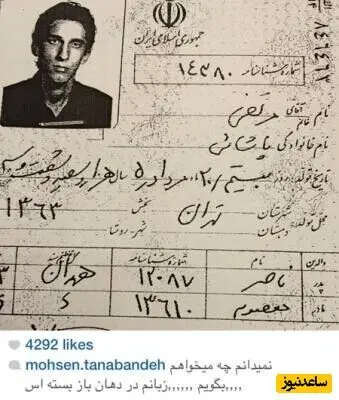 جمهوری اسلامی ایران
شماره شناسنامه ۱۴۳۸۰
نام آقای خانم مرتضی
نام خانوادگی پاشائی
تاریخ تولد: روز بیستم /۲۰ مرداد ۵ سال هزار سیصد و شصت و سه
۱۳۶۳
محل تولد: شهرستان تهران بخش
دهستان شهر - روستا
والدین نام شماره شناسنامه محل
پدر ناصر ۱۲۰۸۷
مادر معصومه ۱۳۶۱۰
4292 likes
mohsen.tanabandeh نمیدانم چه میخواهم
بگویم ,,,,,,زبانم در دهان باز بسته اس,,,,
ساعدنیوز